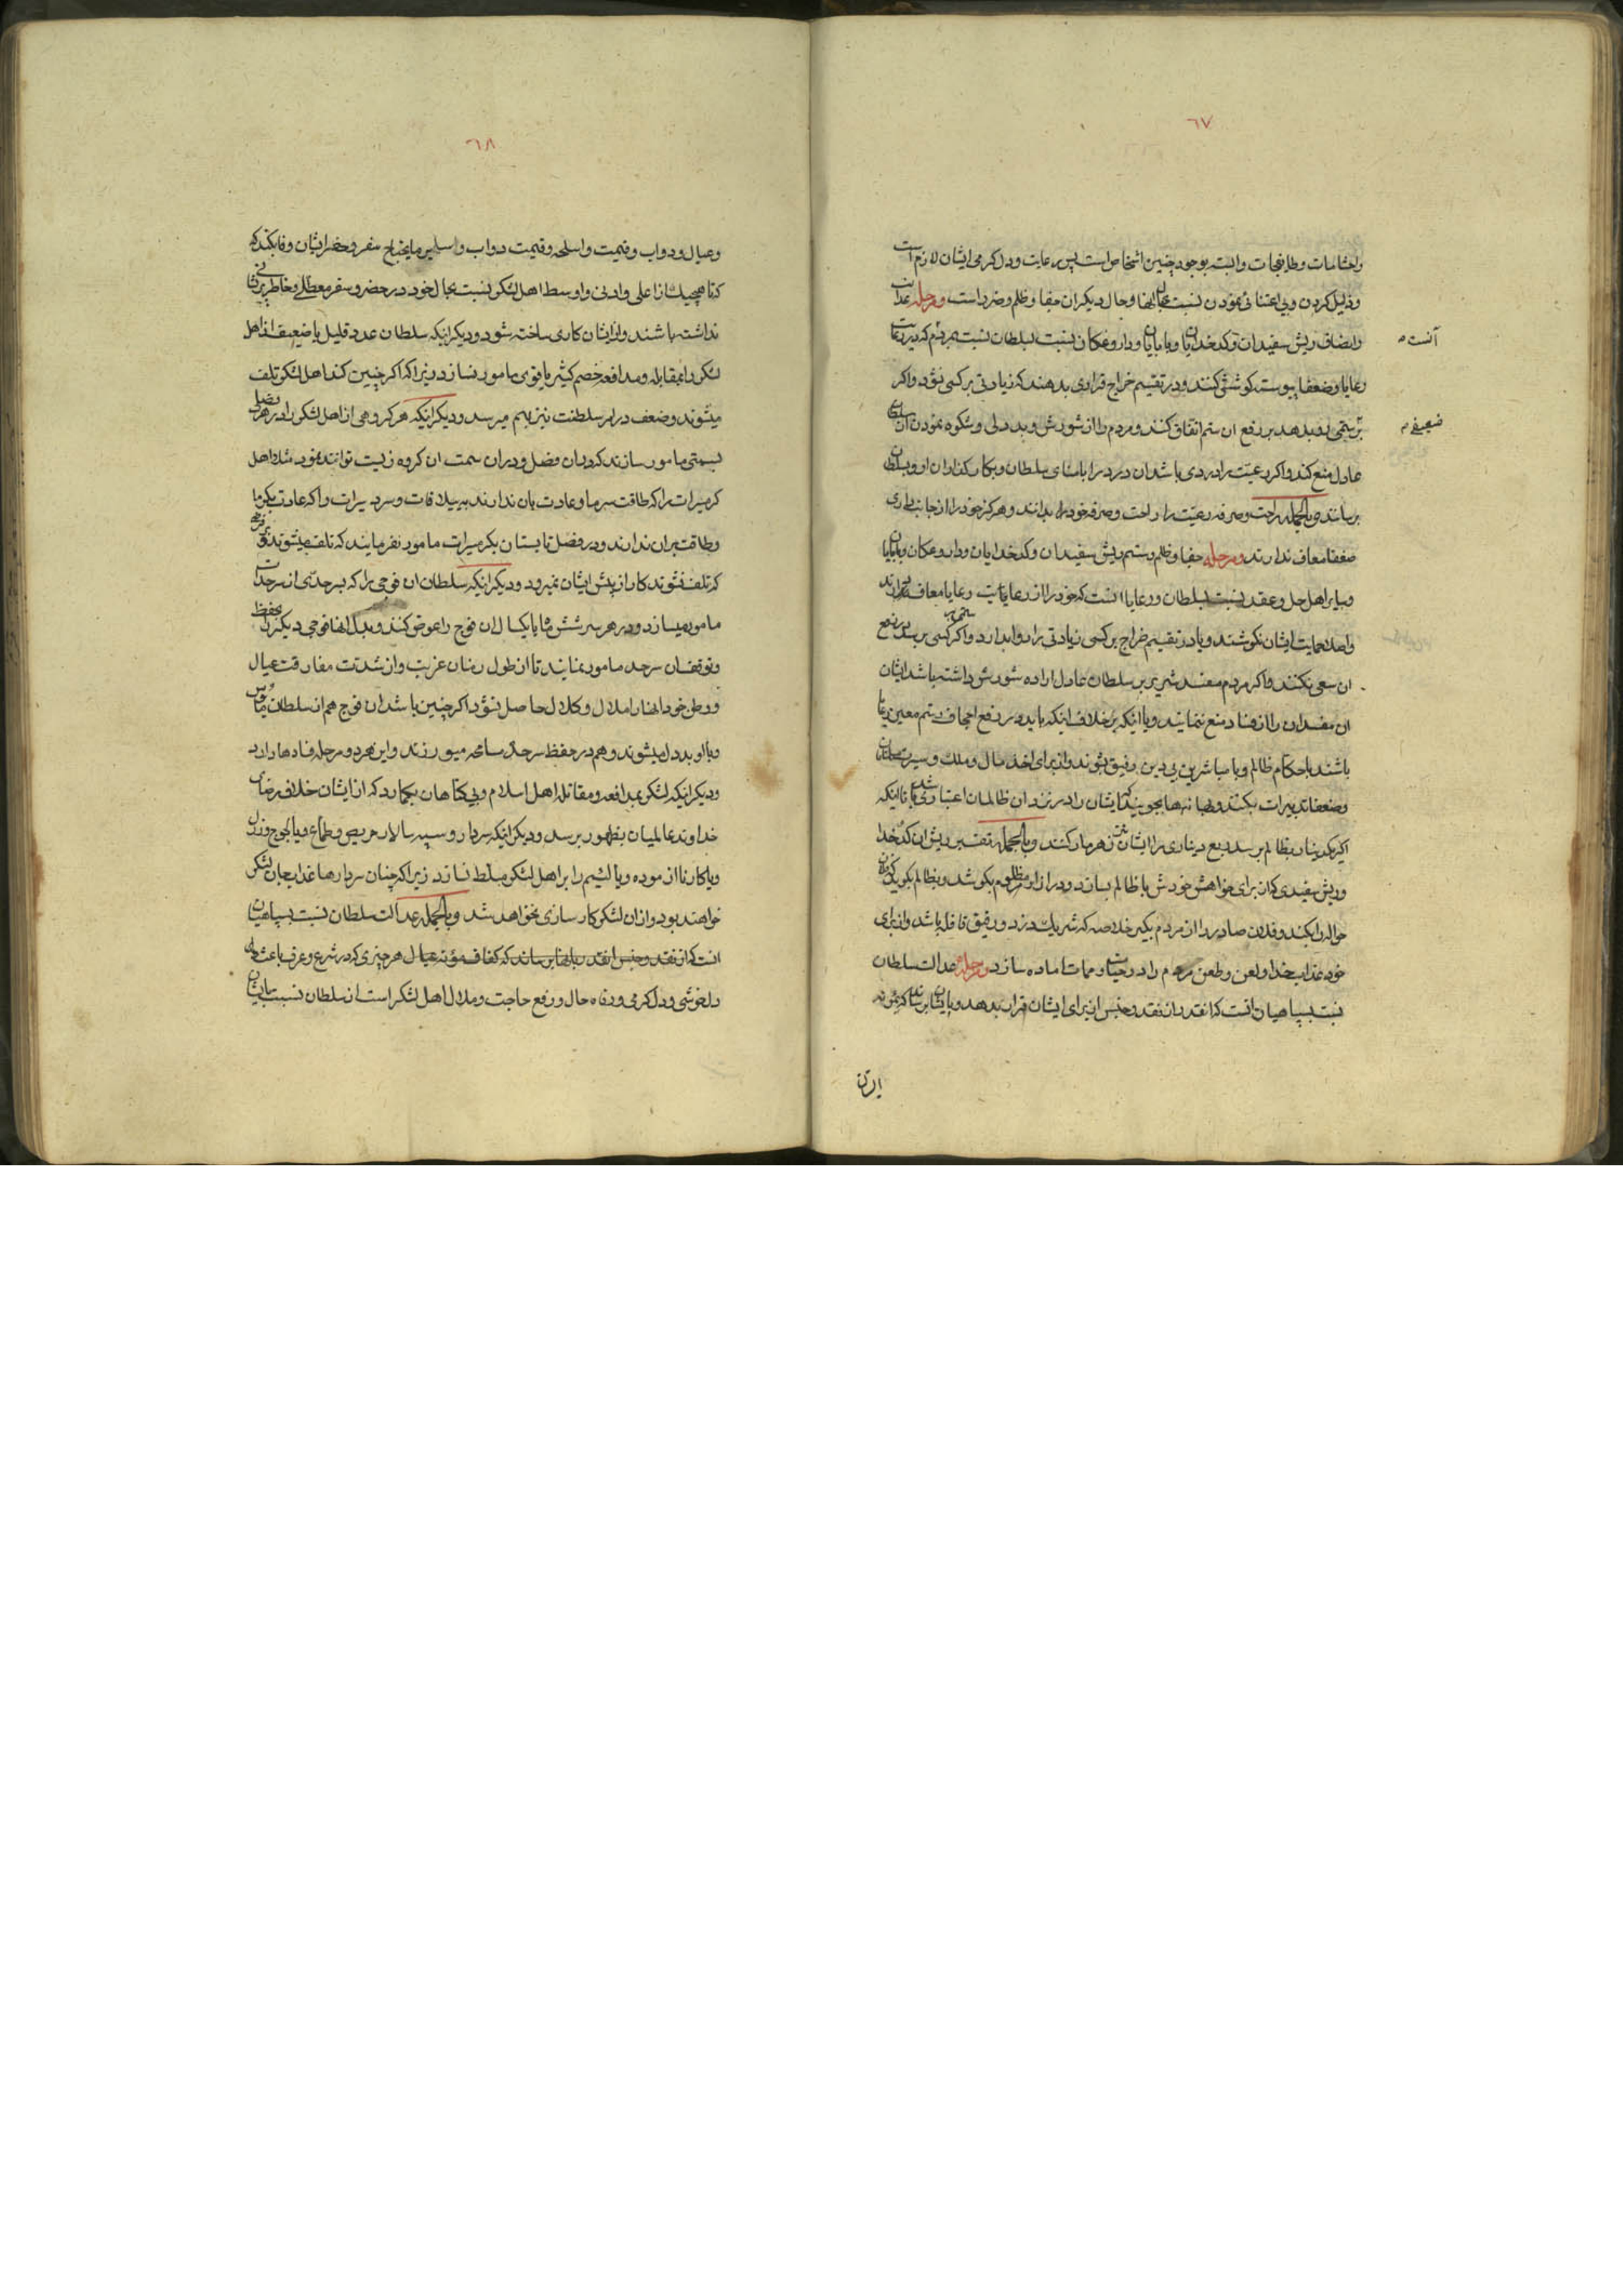 ٦٧
واحتشامات وطایفجات وابسته بوجود چنین اشخاص است پس رعایت ودلکرمی ایشان لازم است
وذلیل کردن وبی اعتنائی نمودن نسبت بحال انها وحال دیکران جفا وظلم وضرر است ومرحله عدالت
وانصاف ریش سفیدان وکدخدایان وبابایان وداروغکان نسبت بسلطان نسبت بمردم که در رعایت
آنست
رعایا وضعفا پیوسته کوشش کنند ودر تقسیم خراج قراری بدهند که زیادتی بر کسی نشود واکر
بر ستمی رو بدهد بر رفع ان ستم اتفاق کنند ومردم را از شورش وبددلی وشکوه نمودن از سلطان
ضعیفی
عادل منع کنند واکر رعیت را دردی باشد ان درد را بامنای سلطان وبکارکذاران او وبسلطان
برسانند وبالجمله راحت وصرفه رعیت را راحت وصرفه خود بدانند وهرکز خود را از جانب داری
ضعفا معاف ندارند ومرحله جفا وظلم وستم ریش سفیدان وکدخدایان وداروغکان وبابایان
وسایر اهل حل وعقد نسبت بسلطان ورعایا انست که خود را از رعایت رعایا معاف دارند
واصلا بحمایت ایشان نکوشند ویا در تقسیم خراج بر کسی زیادتی را روا بدارد واکر کسی ستمی برسد بر رفع
ان سعی نکنند واکر مردم مفسد شریر بر سلطان عادل اراده شورش داشته باشد ایشان
ان مفسدان را از فساد منع ننمایند ویا اینکه برخلاف اینکه باید در رفع اجحاف وستم معین رعایا
باشند با حکام ظالم وبا مباشرین بی دین رفیق شوند واز برای اخذ مال وملک وسیرت مسلمانان
وضعفا تدبیرات بکنند وبهانه ها بجویند که ایشان را در نزد ان ظالمان اعتباری باشد تا اینکه
اکر یکدینار بظالم برسد ربع دیناری را ایشان نیز زهرمار کنند وبالجمله تقصیر ریش ان کدخدا
وریش سفیدی که از برای خواهش خودش با ظالم بسازد ودر ازار مظلوم بکوشد وبظالم بکوید که فلان
حواله را بکند وفلان صادر را از مردم بکیر خلاصه که شریک دزد ورفیق قافله باشد واز برای
خود عذاب خدا ولعن وطعن مردم را در حیات وممات اماده سازد ومرحله عدالت سلطان
نسبت بسپاهیان انست که انقدر از نقد وجنس از برای ایشان قرار بدهد وبایشان برساند که بمؤنه
ایشان
٦٨
وعیال ودواب وقیمت واسلحه وقیمت دواب وسایر مایحتاج سفر وحضر ایشان وفا بکند که
که تا هیچیک از اعلی وادنی واوسط اهل لشکر نسبت بحال خود در حضر وسفر معطلی وخاطر پریشانی
نداشته باشند واز ایشان کاری ساخته شود ودیکر اینکه سلطان عدد قلیل یا ضعیف از اهل
لشکر را بمقابله ومدافعه خصم کثیر یا قوی مامور نسازد زیرا که اکر چنین کند اهل لشکر تلف
میشوند وضعف در امر سلطنت نیز بهم میرسد ودیکر اینکه هر کروهی از اهل لشکر را در هر فصلی
بسمتی مامور سازند که در ان فصل ودر ان سمت ان کروه زیست توانند نمود مثلا اهل
کرمسیرات را که طاقت سرما وعادت بان ندارند به ییلاقات وسردسیرات را که عادت بکرما
وطاقت بران ندارند ودر فصل تابستان بکرمسیرات مامور نفرمایند که تلف میشوند وقبل از
که تلف نشوند کار از پیش ایشان نمیرود ودیکر اینکه سلطان ان فوجی را که بسرحدی از سرحدات
مامور میسازد ودر هر سر شش ماه یا یکسال ان فوج را عوض کند وبدل انها فوجی دیکر را بحفظ
وتوقف ان سرحد مامور نمایند تا از طول زمان غربت واز شدت مفارقت عیال
ووطن خود انها را ملال وکلال حاصل نشود اکر چنین باشد ان فوج هم از سلطان مایوس
وبا او بددل میشوند وهم در حفظ سرحد مسامحه میورزند واین هر دو مرحله فسادها دارد
ودیکر اینکه لشکر بمدافعه ومقاتله اهل اسلام وبی کناهان نکمارد که از ایشان خلاف رضای
خداوند عالمیان بظهور برسد ودیکر اینکه سردار وسپه سالار حریص وطماع ویا لجوج وزن
ویا کار نا ازموده ویا لئیم را بر اهل لشکر مسلط نسازد زیرا که چنان سردارها عذاب جان لشکر
خواهند بود واز ان لشکر کارسازی نخواهد شد وبالجمله عدالت سلطان نسبت بسپاهیان
انست که از نقد وجنس انقدر بانها برساند که کفاف مؤنه عیال هر چیزی که در شرع وعرف باعث
دلخوشی ودلکرمی ورفاه حال ورفع حاجت وملال اهل لشکر است از سلطان نسبت بایشان